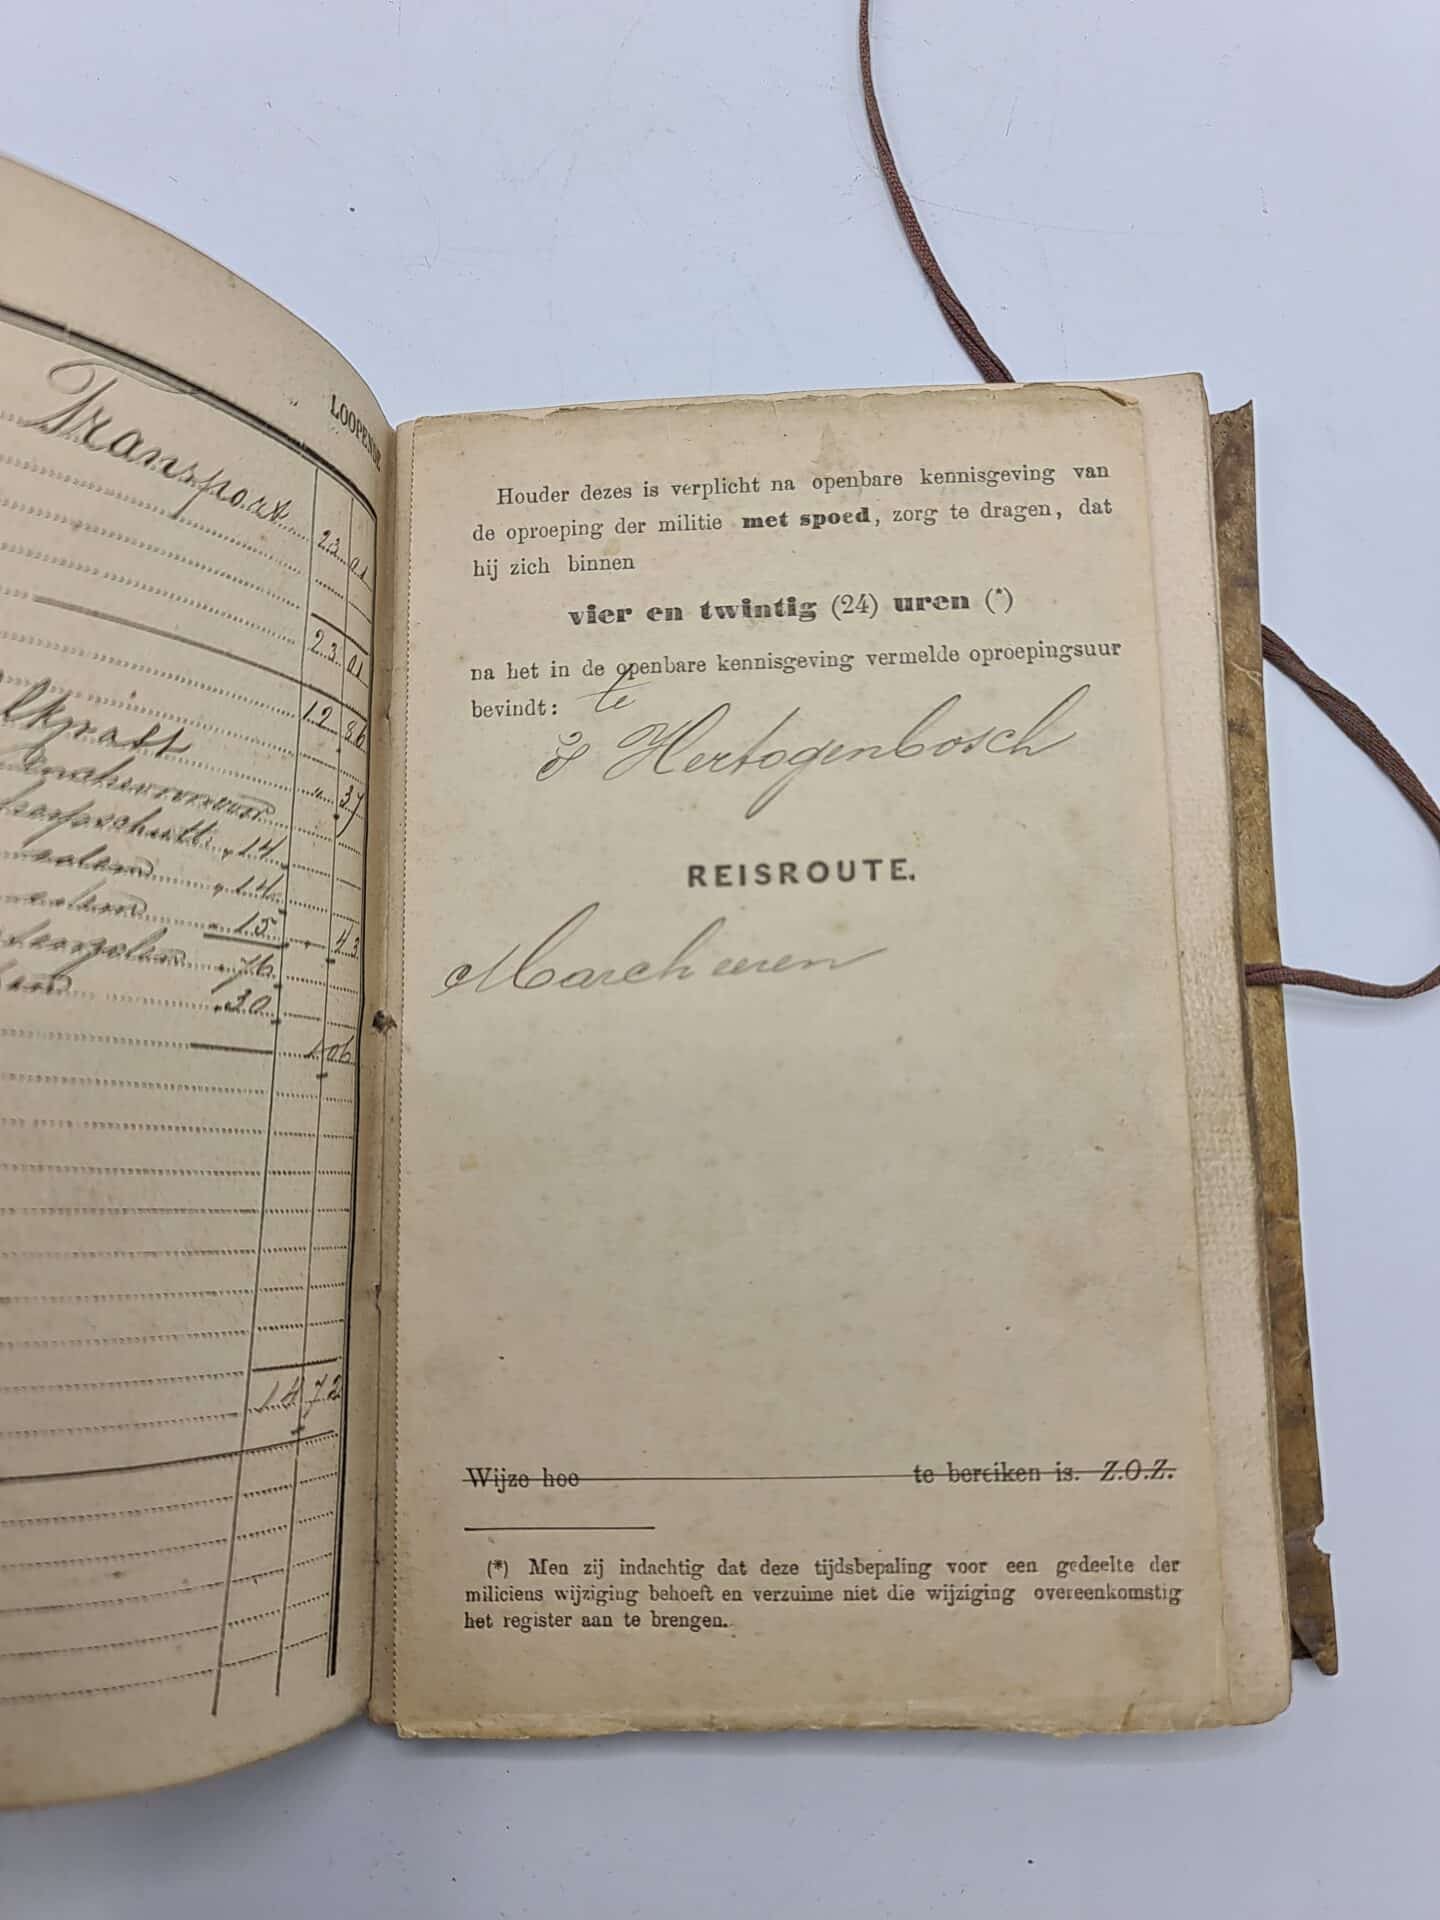 LOOPENDE
Transport 23 01
23 01
12 86
" 37
14
14
15 43
76
30
1 06
14 72
Houder dezes is verplicht na openbare kennisgeving van
de oproeping der militie met spoed, zorg te dragen, dat
hij zich binnen
vier en twintig (24) uren (*)
na het in de openbare kennisgeving vermelde oproepingsuur
bevindt: te
'S Hertogenbosch
REISROUTE.
Marcheeren
Wijze hoe te bereiken is. Z.O.Z.
(*) Men zij indachtig dat deze tijdsbepaling voor een gedeelte der
miliciens wijziging behoeft en verzuime niet die wijziging overeenkomstig
het register aan te brengen.